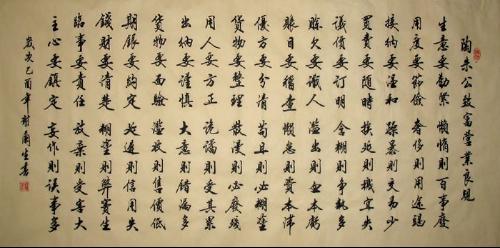 陶朱公致富營業良規
生意要勤緊 懶惰則百事廢
用度要節儉 奢侈則用途竭
接納要溫和 躁暴則交易少
買賣要隨時 挨延則機宜失
議價要訂明 含糊則爭執多
賒欠要識人 濫出則血本虧
賬目要稽查 懶怠則資本滯
優劣要分清 苟且則必糊塗
貨物要整理 散漫則必廢殘
用人要方正 詭譎則受其累
出納要謹慎 大意則錯漏多
貨物要面驗 濫收則售價低
期限要約定 延遲則信用失
錢財要清楚 糊塗則弊竇生
臨事要責任 放棄則受害大
主心要鎮定 妄作則誤事多
歲次己酉年 生書